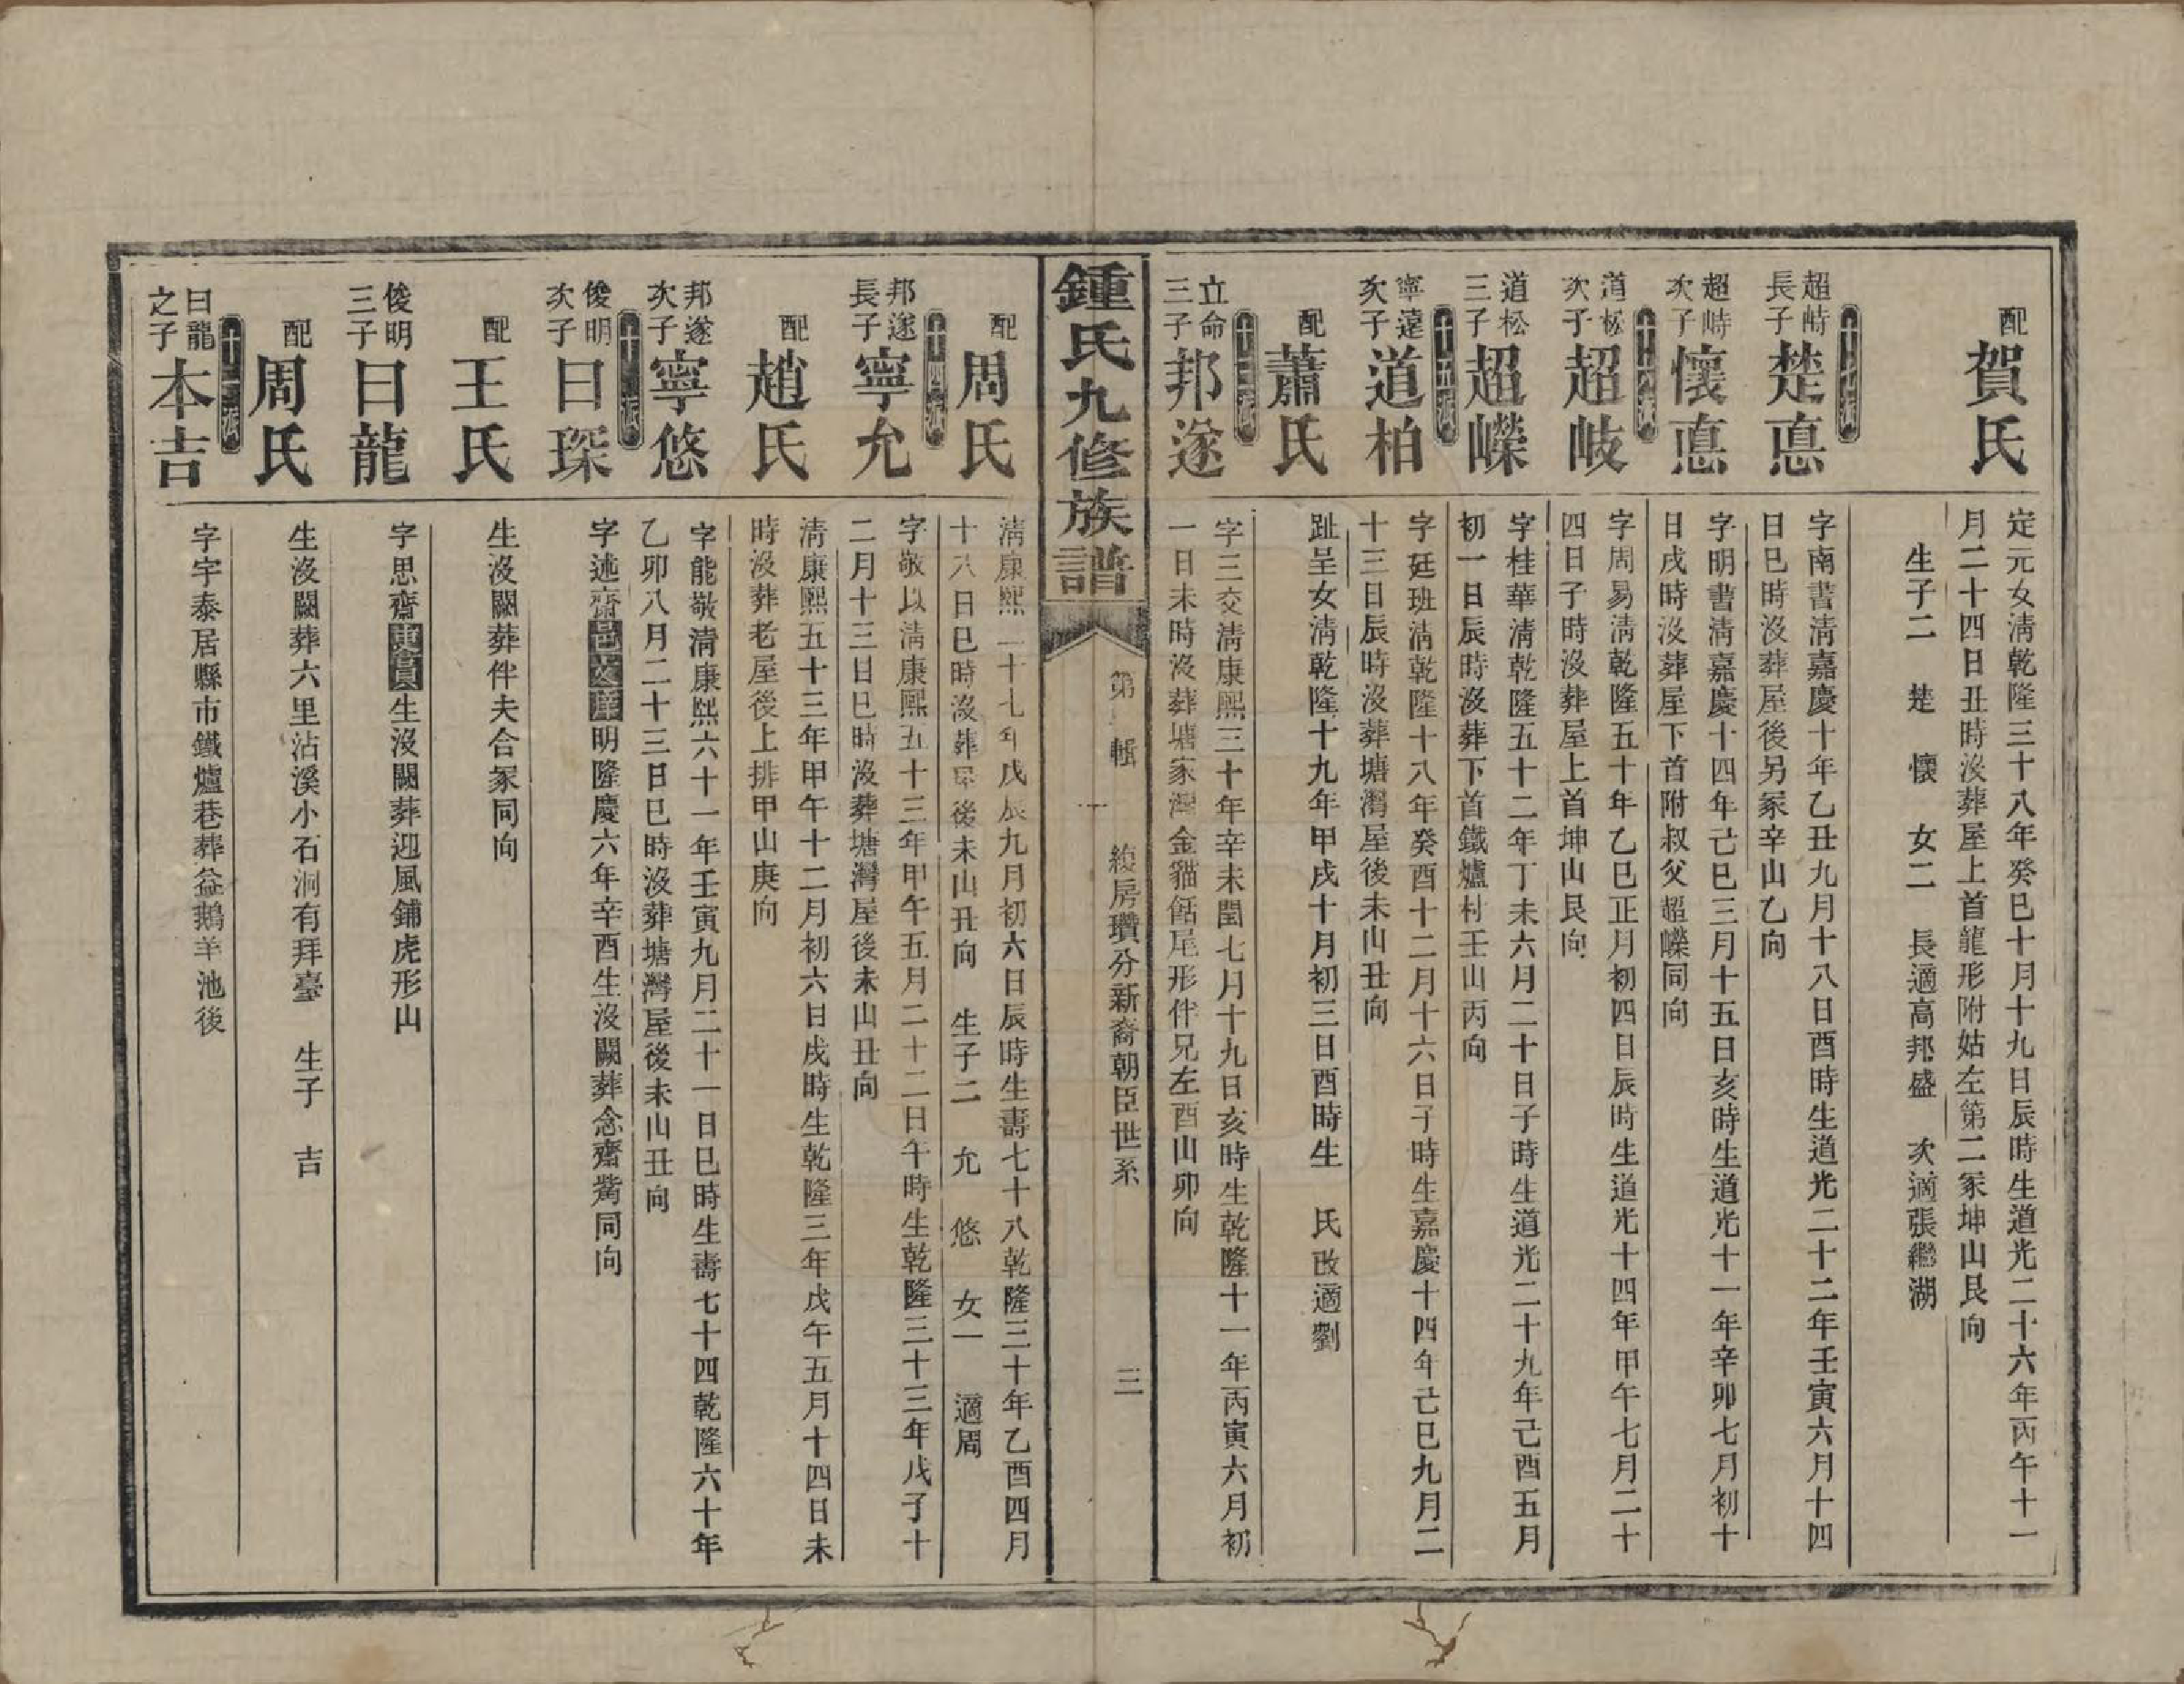 配
賀氏
定元女淸乾隆三十八年癸巳十月十九日辰時生道光二十六年丙午十一
月二十四日丑時沒葬屋上首龍形附姑左第二冢坤山艮向
生子二　楚　懷　女二　長適高邦盛　次適張繼湖
十七派
超峙
長子
楚惪
字南書淸嘉慶十年乙丑九月十八日酉時生道光二十二年壬寅六月十四
日巳時沒葬屋後另冢辛山乙向
超峙
次子
懷惪
字明書淸嘉慶十四年己巳三月十五日亥時生道光十一年辛卯七月初十
日戌時沒葬屋下首附叔父超嶸同向
十六派
道松
次子
超岐
字周易淸乾隆五十年乙巳正月初四日辰時生道光十四年甲午七月二十
四日子時沒葬屋上首坤山艮向
道松
三子
超嶸
字桂華淸乾隆五十二年丁未六月二十日子時生道光二十九年己酉五月
初一日辰時沒葬下首鐵爐村壬山丙向
十五派
寧遠
次子
道柏
字廷班淸乾隆十八年癸酉十二月十六日子時生嘉慶十四年己巳九月二
十三日辰時沒葬塘灣屋後未山丑向
配
蕭氏
趾呈女淸乾隆十九年甲戌十月初三日酉時生　氏改適劉
十三派
立命
三子
邦遂
字三交淸康熙三十年辛未閏七月十九日亥時生乾隆十一年丙寅六月初
一日未時沒葬塘家灣金貓𦧇尾形伴兄左酉山卯向
鍾氏九修族譜
第　輯
十
綾房瓚分新裔朝臣世系
三
配
周氏
淸康熙二十七年戊辰九月初六日辰時生壽七十八乾隆三十年乙酉四月
十八日巳時沒葬屋後未山丑向　生子二　允　悠　女一　適周
十四派
邦遂
長子
寧允
字敬以淸康熙五十三年甲午五月二十二日午時生乾隆三十三年戊子十
二月十三日巳時沒葬塘灣屋後未山丑向
配
趙氏
淸康熙五十三年甲午十二月初六日戌時生乾隆三年戊午五月十四日未
時沒葬老屋後上排甲山庚向
邦遂
次子
寧悠
字能敬淸康熙六十一年壬寅九月二十一日巳時生壽七十四乾隆六十年
乙卯八月二十三日巳時沒葬塘灣屋後未山丑向
十一派
俊明
次子
曰琛
字述齋邑文庠明隆慶六年辛酉生沒闕葬念齋觜同向
配
王氏
生沒闕葬伴夫合冢同向
俊明
三子
曰龍
字思齋東會員生沒闕葬迎風鋪虎形山
配
周氏
生沒闕葬六里沾溪小石洞有拜臺　生子　吉
十二派
曰龍
之子
本吉
字宇泰居縣市鐵爐巷葬益鵝羊池後